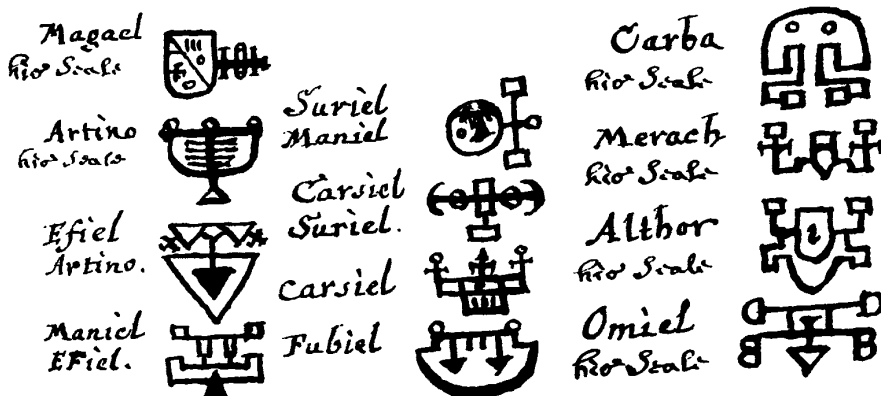 Magael
his Seale
Artino
his Seale
Efiel
Artino.
Maniel
EFiel.
Suriel
Maniel
Carsiel
Suriel.
Carsiel
Fubiel
Carba
his Seale
Merach
his Seale
Althor
his Seale
Omiel
his Seale